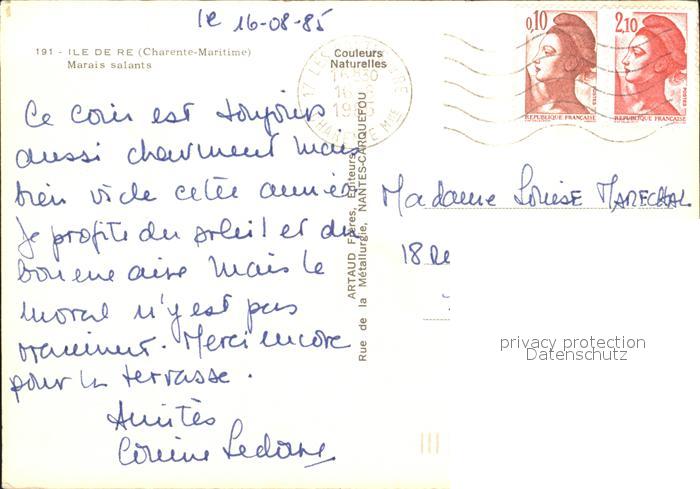 le 16-08-85
191 - ILE DE RE (Charente-Maritime)
Marais salants
Couleurs
Naturelles
0,10
2,10
REPUBLIQUE FRANCAISE
REPUBLIQUE FRANCAISE
Ce coin est toujours
aussi charment mais
bien vide cette année
Je profite du soleil et du
bon aire mais le
moral n'y est pas
vraiment. Merci encore
pour la terrasse.
Amitiés
ARTAUD Frères, Editeurs
Rue de la Métallurgie, NANTES-CARQUEFOU
Madame Louise MARECHAL
18
privacy protection
Datenschutz